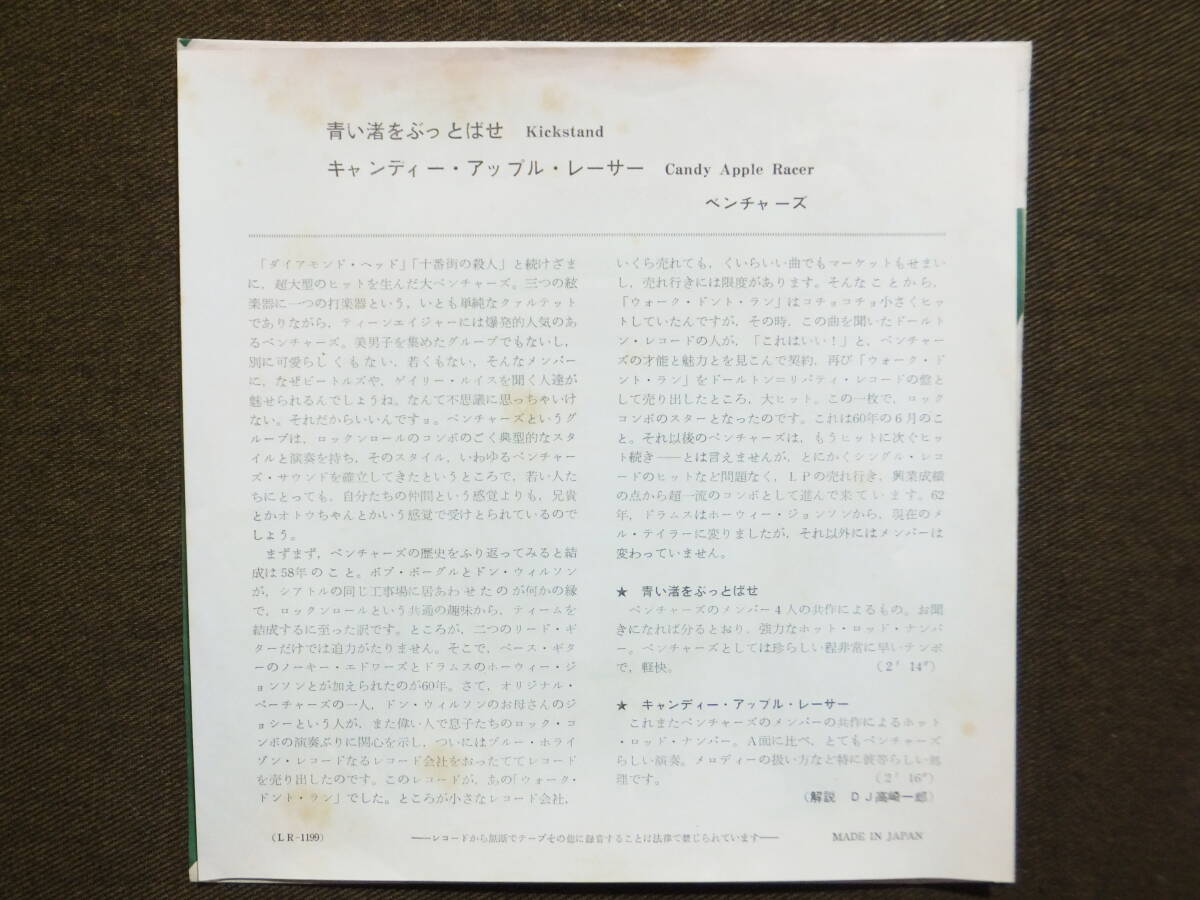 青い渚をぶっとばせ Kickstand
キャンディー・アップル・レーサー Candy Apple Racer
ベンチャーズ
「ダイアモンド・ヘッド」「十番街の殺人」と続けざま
に，超大型のヒットを生んだ大ベンチャーズ。三つの絃
楽器に一つの打楽器という，いとも単純なクァルテット
でありながら，ティーンエイジャーには爆発的人気のあ
るベンチャーズ。美男子を集めたグループでもないし，
別に可愛らしくもない，若くもない，そんなメンバー
に，なぜビートルズや，ゲイリー・ルイスを聞く人達が
魅せられるんでしょうね。なんて不思議に思っちゃいけ
ない。それだからいいんですョ。ベンチャーズというグ
ループは，ロックンロールのコンボのごく典型的なスタ
イルと演奏を持ち，そのスタイル，いわゆるベンチャー
ズ・サウンドを確立してきたというところで，若い人た
ちにとっても，自分たちの仲間という感覚よりも，兄貴
とかオトウちゃんとかいう感覚で受けとられているので
しょう。
まずまず，ベンチャーズの歴史をふり返ってみると結
成は58年のこと。ボブ・ボーグルとドン・ウィルソン
が，シアトルの同じ工事場に居あわせたのが何かの縁
で，ロックンロールという共通の趣味から，ティームを
結成するに至った訳です。ところが，二つのリード・ギ
ターだけでは迫力がたりません。そこで，ベース・ギタ
ーのノーキー・エドワーズとドラムスのホーウィー・ジ
ョンソンとが加えられたのが60年。さて，オリジナル・
ベーチャーズの一人，ドン・ウィルソンのお母さんのジ
ョシーという人が，また偉い人で息子たちのロック・コ
ンボの演奏ぶりに関心を示し，ついにはブルー・ホライ
ゾン・レコードなるレコード会社をおったててレコード
を売り出したのです。このレコードが，あの「ウォーク・
ドント・ラン」でした。ところが小さなレコード会社，
いくら売れても，くいらいい曲でもマーケットもせまい
し，売れ行きには限度があります。そんなことから，
「ウォーク・ドント・ラン」はコチョコチョ小さくヒッ
トしていたんですが，その時，この曲を聞いたドールト
ン・レコードの人が，「これはいい！」と，ベンチャー
ズの才能と魅力とを見こんで契約，再び「ウォーク・ド
ント・ラン」をドールトン＝リバティ・レコードの盤と
して売り出したところ，大ヒット。この一枚で，ロック
コンボのスターとなったのです。これは60年の6月のこ
と。それ以後のベンチャーズは，もうヒットに次ぐヒッ
ト続き――とは言えませんが，とにかくシングル・レコ
ードのヒットなど問題なく，ＬＰの売れ行き，興業成績
の点から超一流のコンボとして進んで来ています。62
年，ドラムスはホーウィー・ジョンソンから，現在のメ
ル・テイラーに変りましたが，それ以外にはメンバーは
変わっていません。
★ 青い渚をぶっとばせ
ベンチャーズのメンバー4人の共作によるもの。お聞
きになれば分るとおり，強力なホット・ロッド・ナンバ
ー。ベンチャーズとしては珍らしい程非常に早いテンポ
で，軽快。 （2′14″）
★ キャンディー・アップル・レーサー
これまたベンチャーズのメンバーの共作によるホット
・ロッド・ナンバー。Ａ面に比べ，とてもベンチャーズ
らしい演奏。メロディーの扱い方など特に彼等らしい処
理です。 （2′16″）
（解説 ＤＪ高崎一郎）
（LR-1199） ――レコードから無断でテープその他に録音することは法律で禁じられています―― MADE IN JAPAN